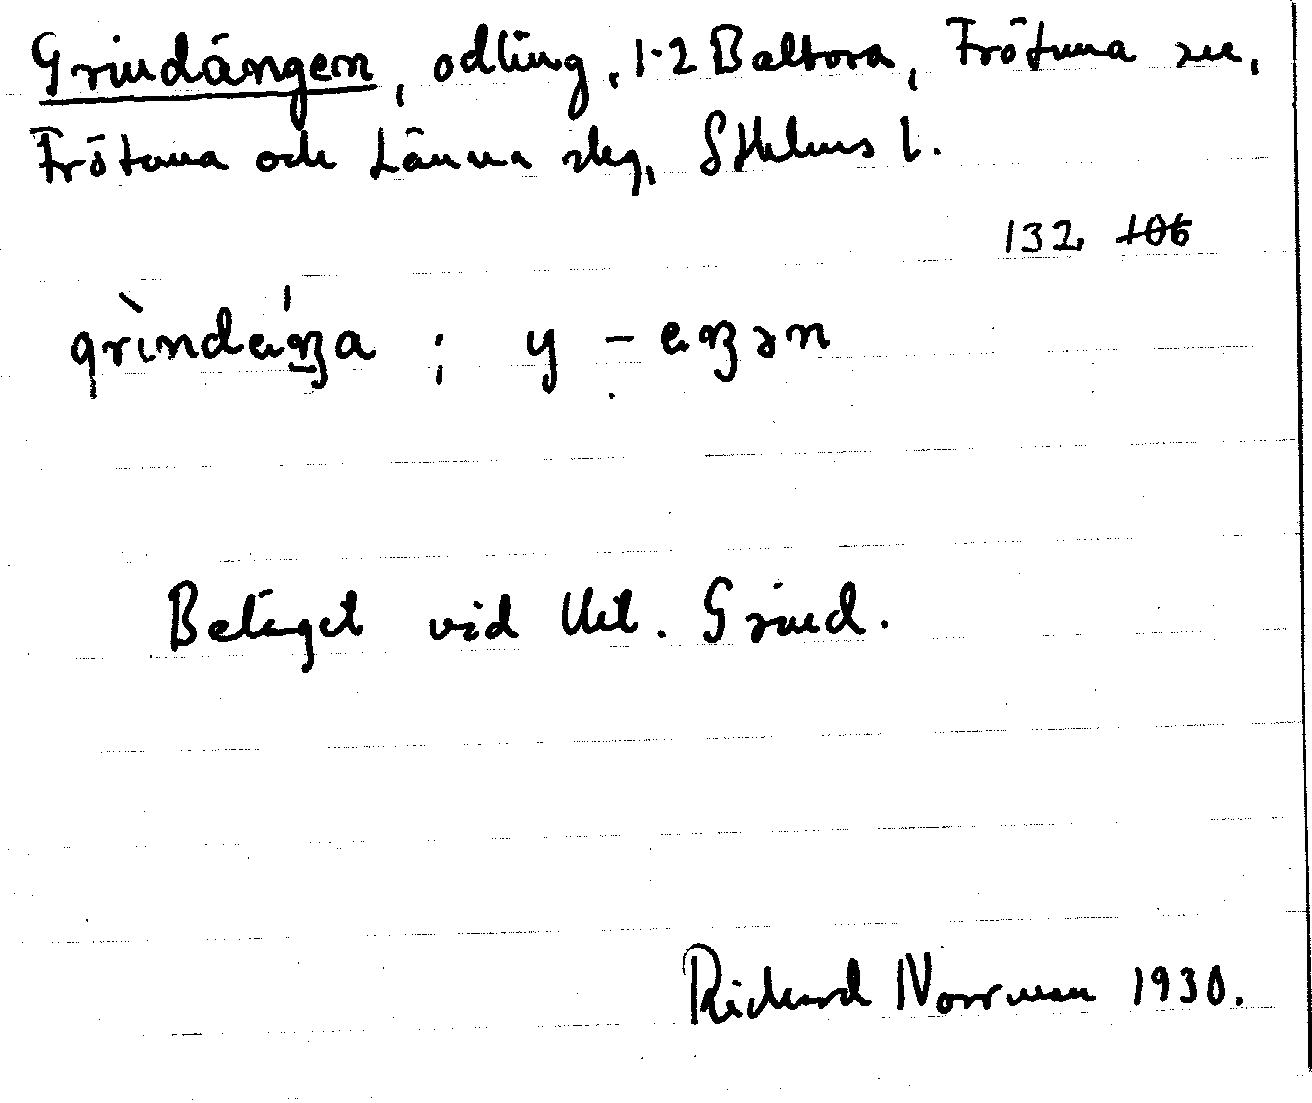 Grindängen, odling, 1-2 Baltora, Frötuna sn,
Frötuna och Länna skg, Sthlms l.
132 106
grindäŋa ; y -eŋən
Beläget vid Grind.
Richard Norrman 1930.